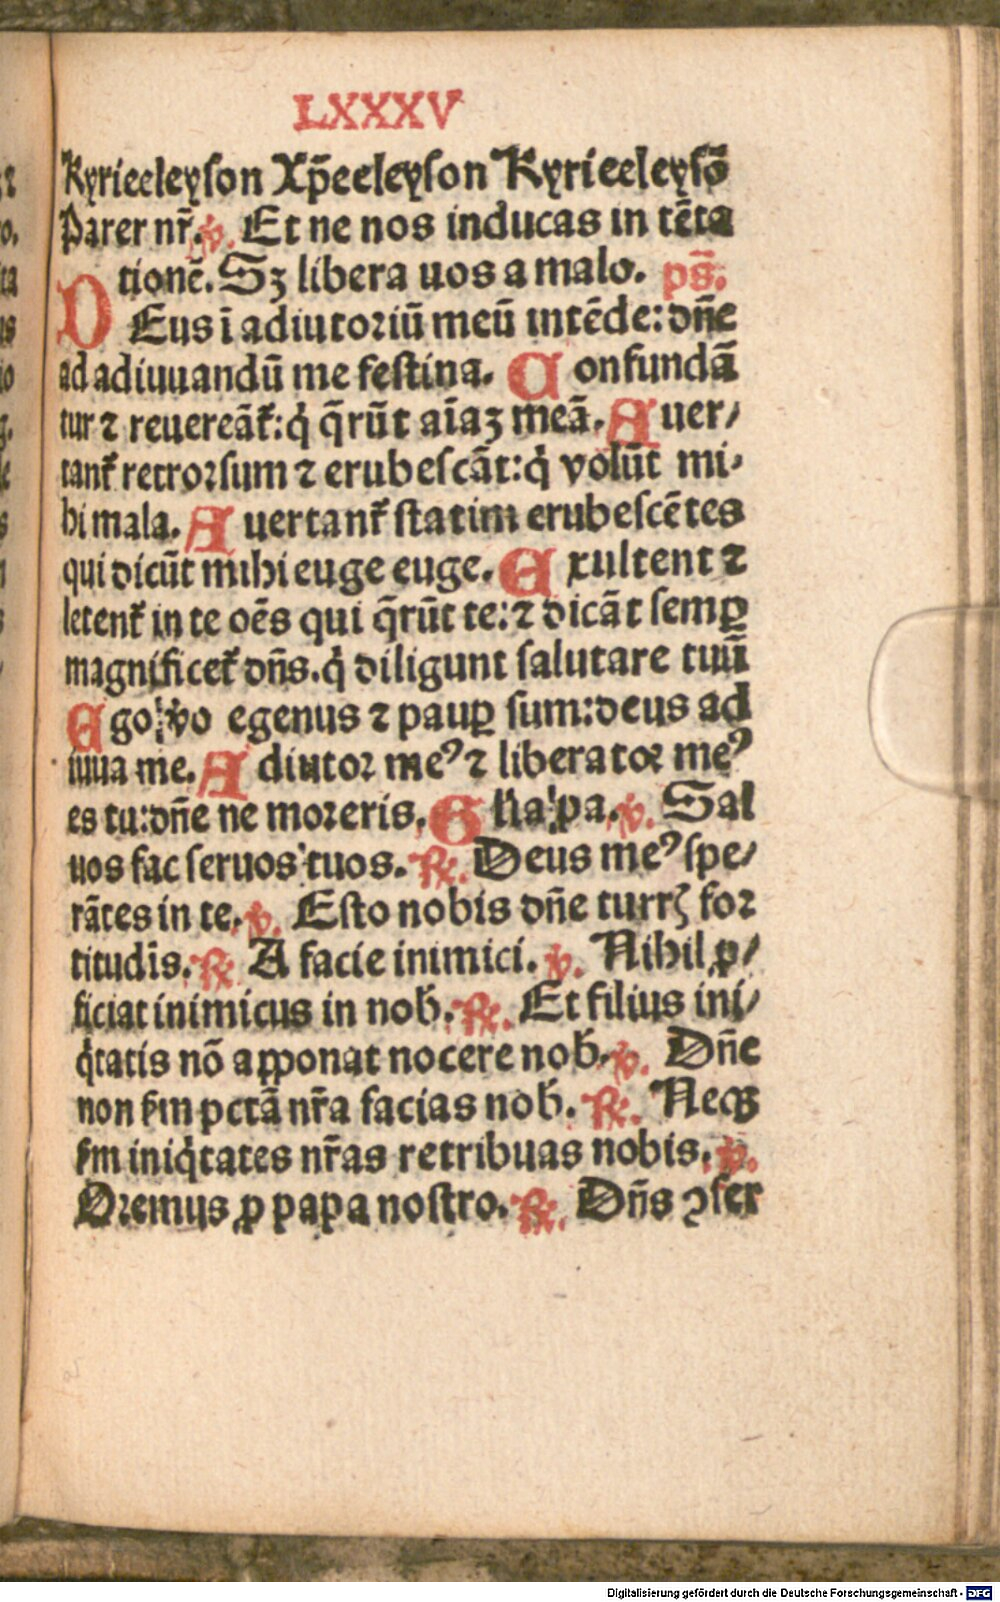 LXXXV
Kyrieeleyson Xp̄eeleyson Kyrieeleysō
Parer nr̄. ℣. Et ne nos inducas in tēta
tionē. Sꝫ libera uos a malo. ps̄.
DEus ī adiutoriū meū intēde: dn̄e
ad adiuuandū me festina. Confundā
tur ⁊ revereāt᷑: q̇ q̄rūt aīaꝫ meā. Auer/
tant᷑ retrorsum ⁊ erubescāt: q̇ volūt mi/
hi mala. Auertant᷑ statim erubescētes
qui dicūt mihi euge euge. Exultent ⁊
letent᷑ in te oēs qui q̄rūt te: ⁊ dicāt semꝑ
magnificet᷑ dn̄s. q̇ diligunt salutare tuū
Ego vo egenus ⁊ pauꝑ sum: deus ad
iuua me. Adiutor meꝰ ⁊ liberator meꝰ
es tu: dn̄e ne moreris. Gl'ia pa. ℣. Sal
uos fac seruos tuos. ℟. Deus meꝰ spe/
rātes in te. ℣. Esto nobis dn̄e turrꝭ for
titudīs. ℟. A facie inimici. ℣. Nihil ꝓ/
ficiat inimicus in nob̄. ℟. Et filius ini/
q̇tatis nō apponat nocere nob̄. ℣. Dn̄e
non ẜm pctā nr̄a facias nob̄. ℟. Neqꝫ
ẜm iniq̇tates nr̄as retribuas nobis. ℣.
Oremus ꝓ papa nostro. ℟. Dn̄s ꝯser
Digitalisierung gefördert durch die Deutsche Forschungsgemeinschaft - DFG